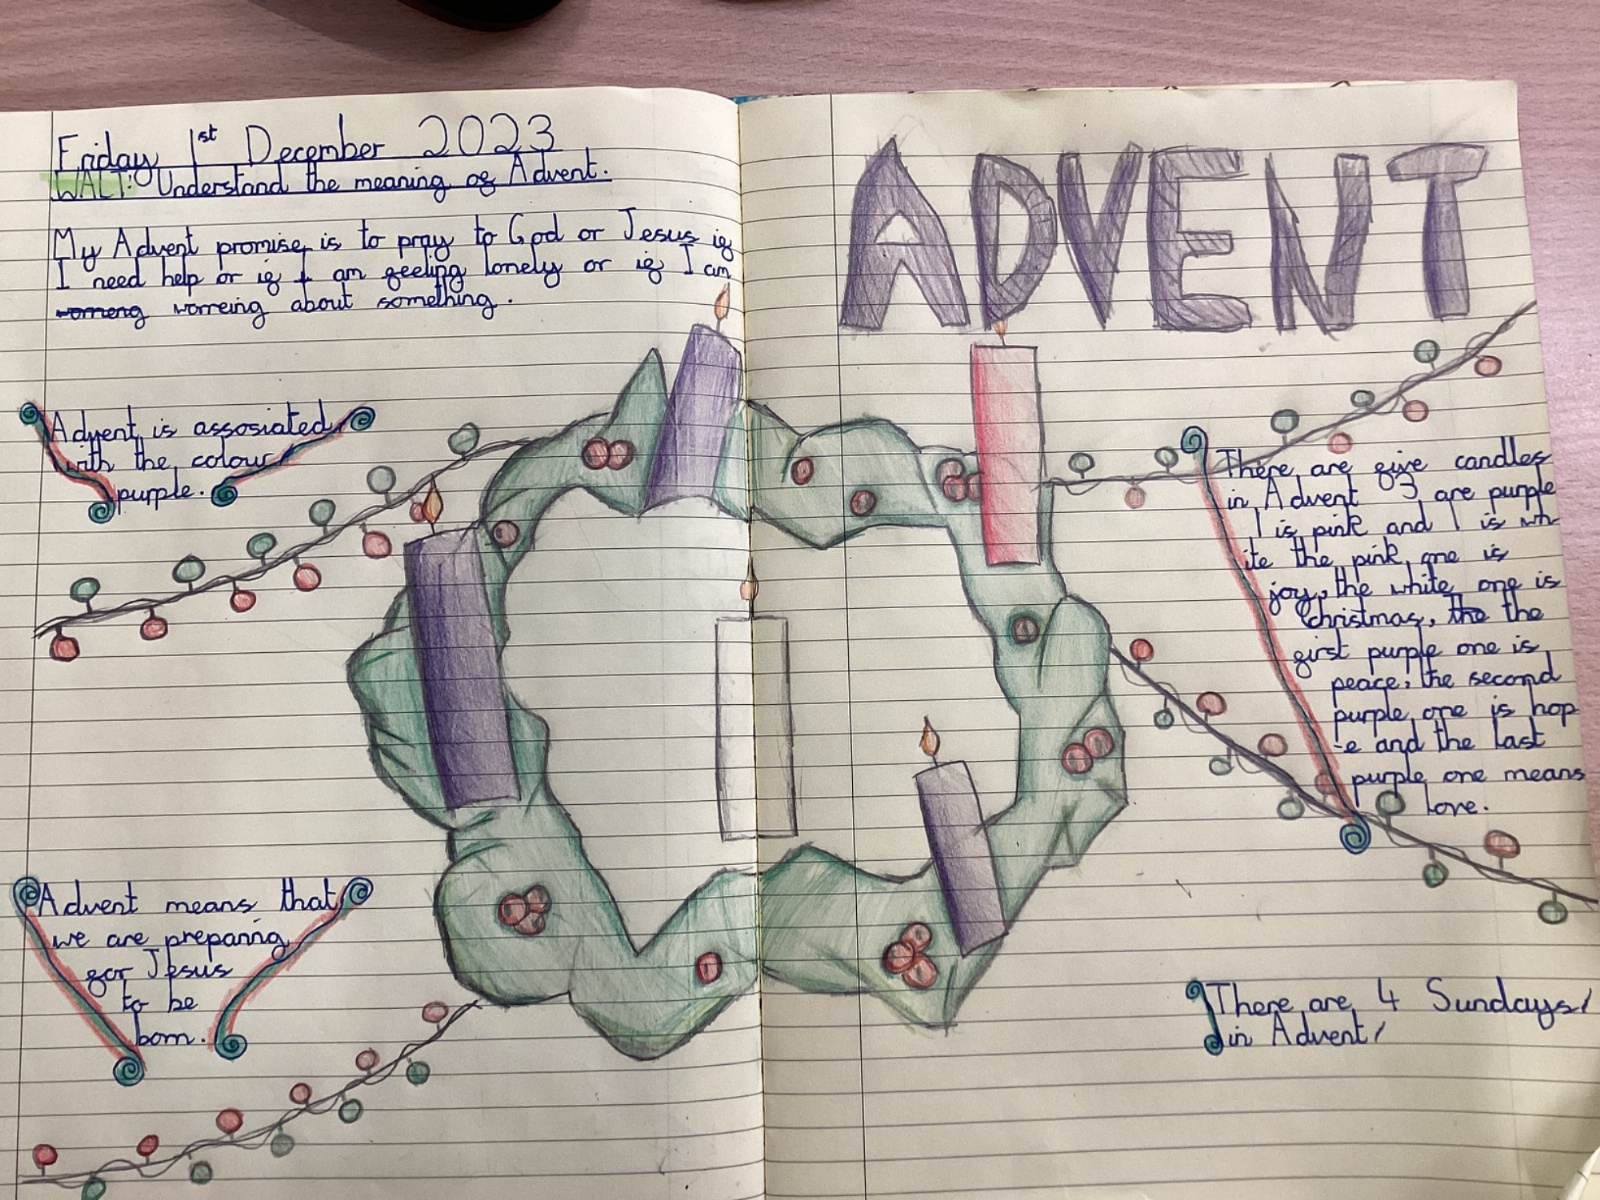 Friday 1st December 2023
WALT: Understand the meaning of Advent.
My Advent promise is to pray to God or Jesus if
I need help or if I am feeling lonely or if I am
worreing about something.
Advent is assosiated
with the colour
purple.
Advent means that
we are preparing
for Jesus
to be
born.
ADVENT
There are five candles
in Advent 3 are purple
1 is pink and 1 is wh
ite the pink one is
joy, the white one is
Christmas, the the
first purple one is
peace, the second
purple one is hop
-e and the last
purple one means
love.
There are 4 Sundays
in Advent